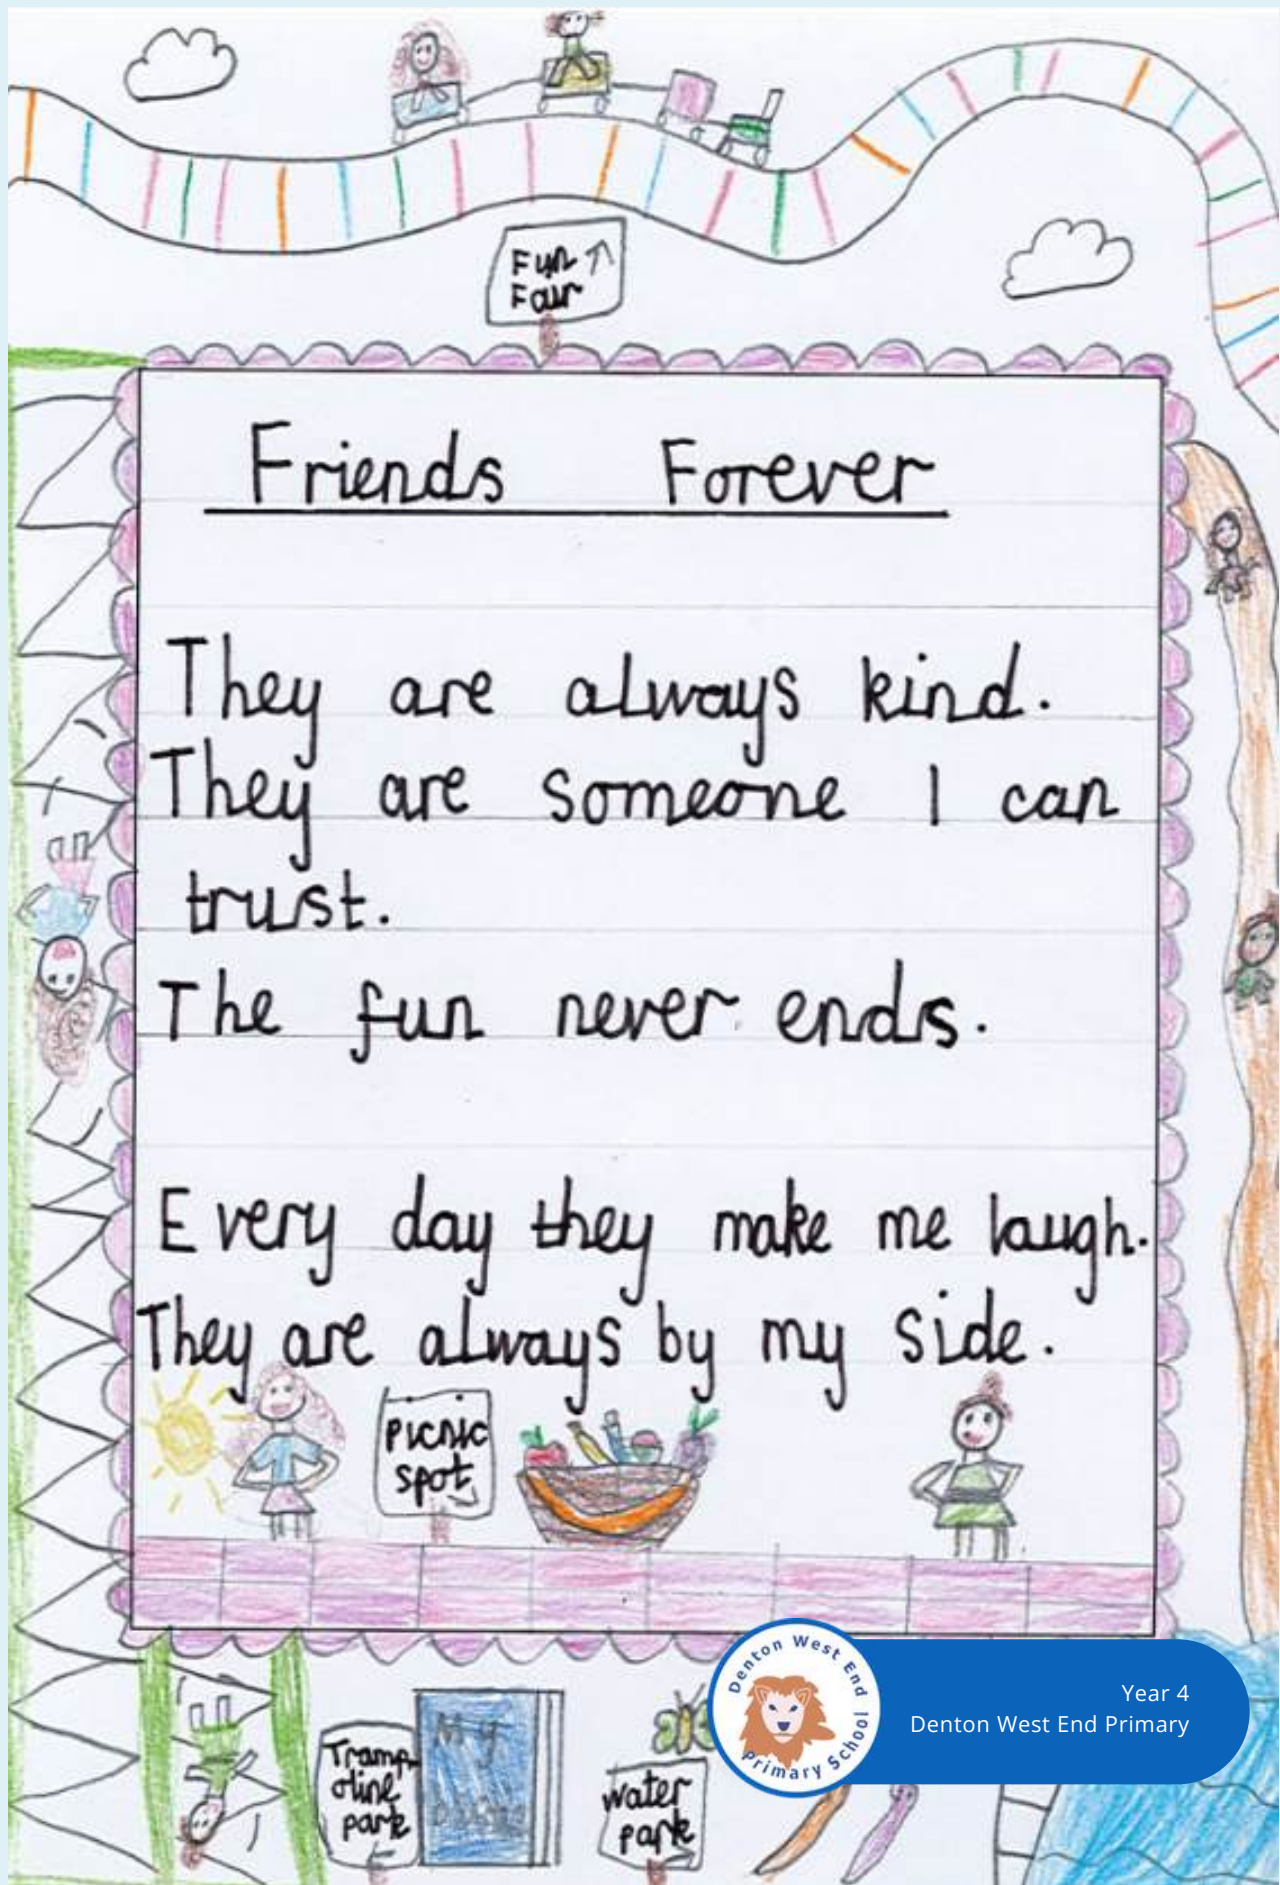 Fun
Fair
Friends Forever
They are always kind.
They are someone I can
trust.
The fun never ends.
Every day they make me laugh.
They are always by my side.
Picnic
spot
Tramp-
oline
park
My
water
park
Denton West End
Primary School
Year 4
Denton West End Primary